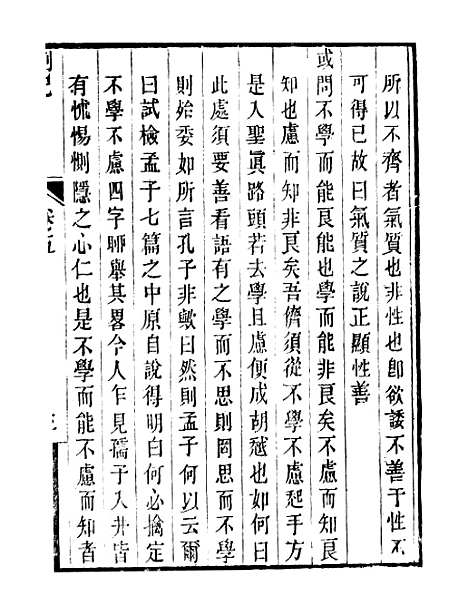 所以不齊者氣質也非性也卽欲諉不善于性不
可得已故曰氣質之說正顯性善
或問不學而能良能也學而能非良矣不慮而知良
知也慮而知非良矣吾儕須從不學不慮起手方
是入聖眞路頭若去學且慮便成胡越也如何曰
此處須要善看語有之學而不思則罔思而不學
則殆委如所言孔子非歟曰然則孟子何以云爾
曰試檢孟子七篇之中原自說得明白何必擒定
不學不慮四字聊舉其畧今人乍見孺子入井皆
有怵惕惻隱之心仁也是不學而能不慮而知者
卷五
三